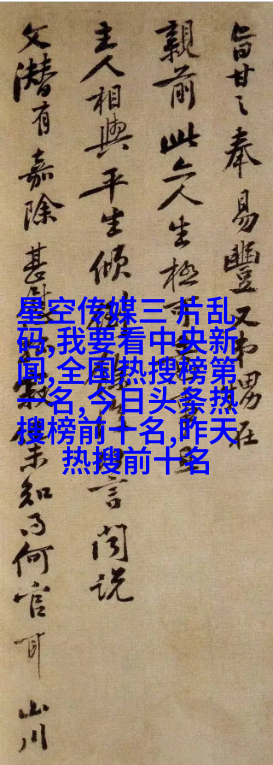 旨甘之奉易豐又弟男在
親前此亦人生極可
主人相與平生傾言閱説
文潜有嘉除甚慰寂未知何官耳山川
星空传媒三 片乱
码,我要看中央新
闻,全国热搜榜第
一名,今日头条热
搜榜前十名,昨天
热搜前十名